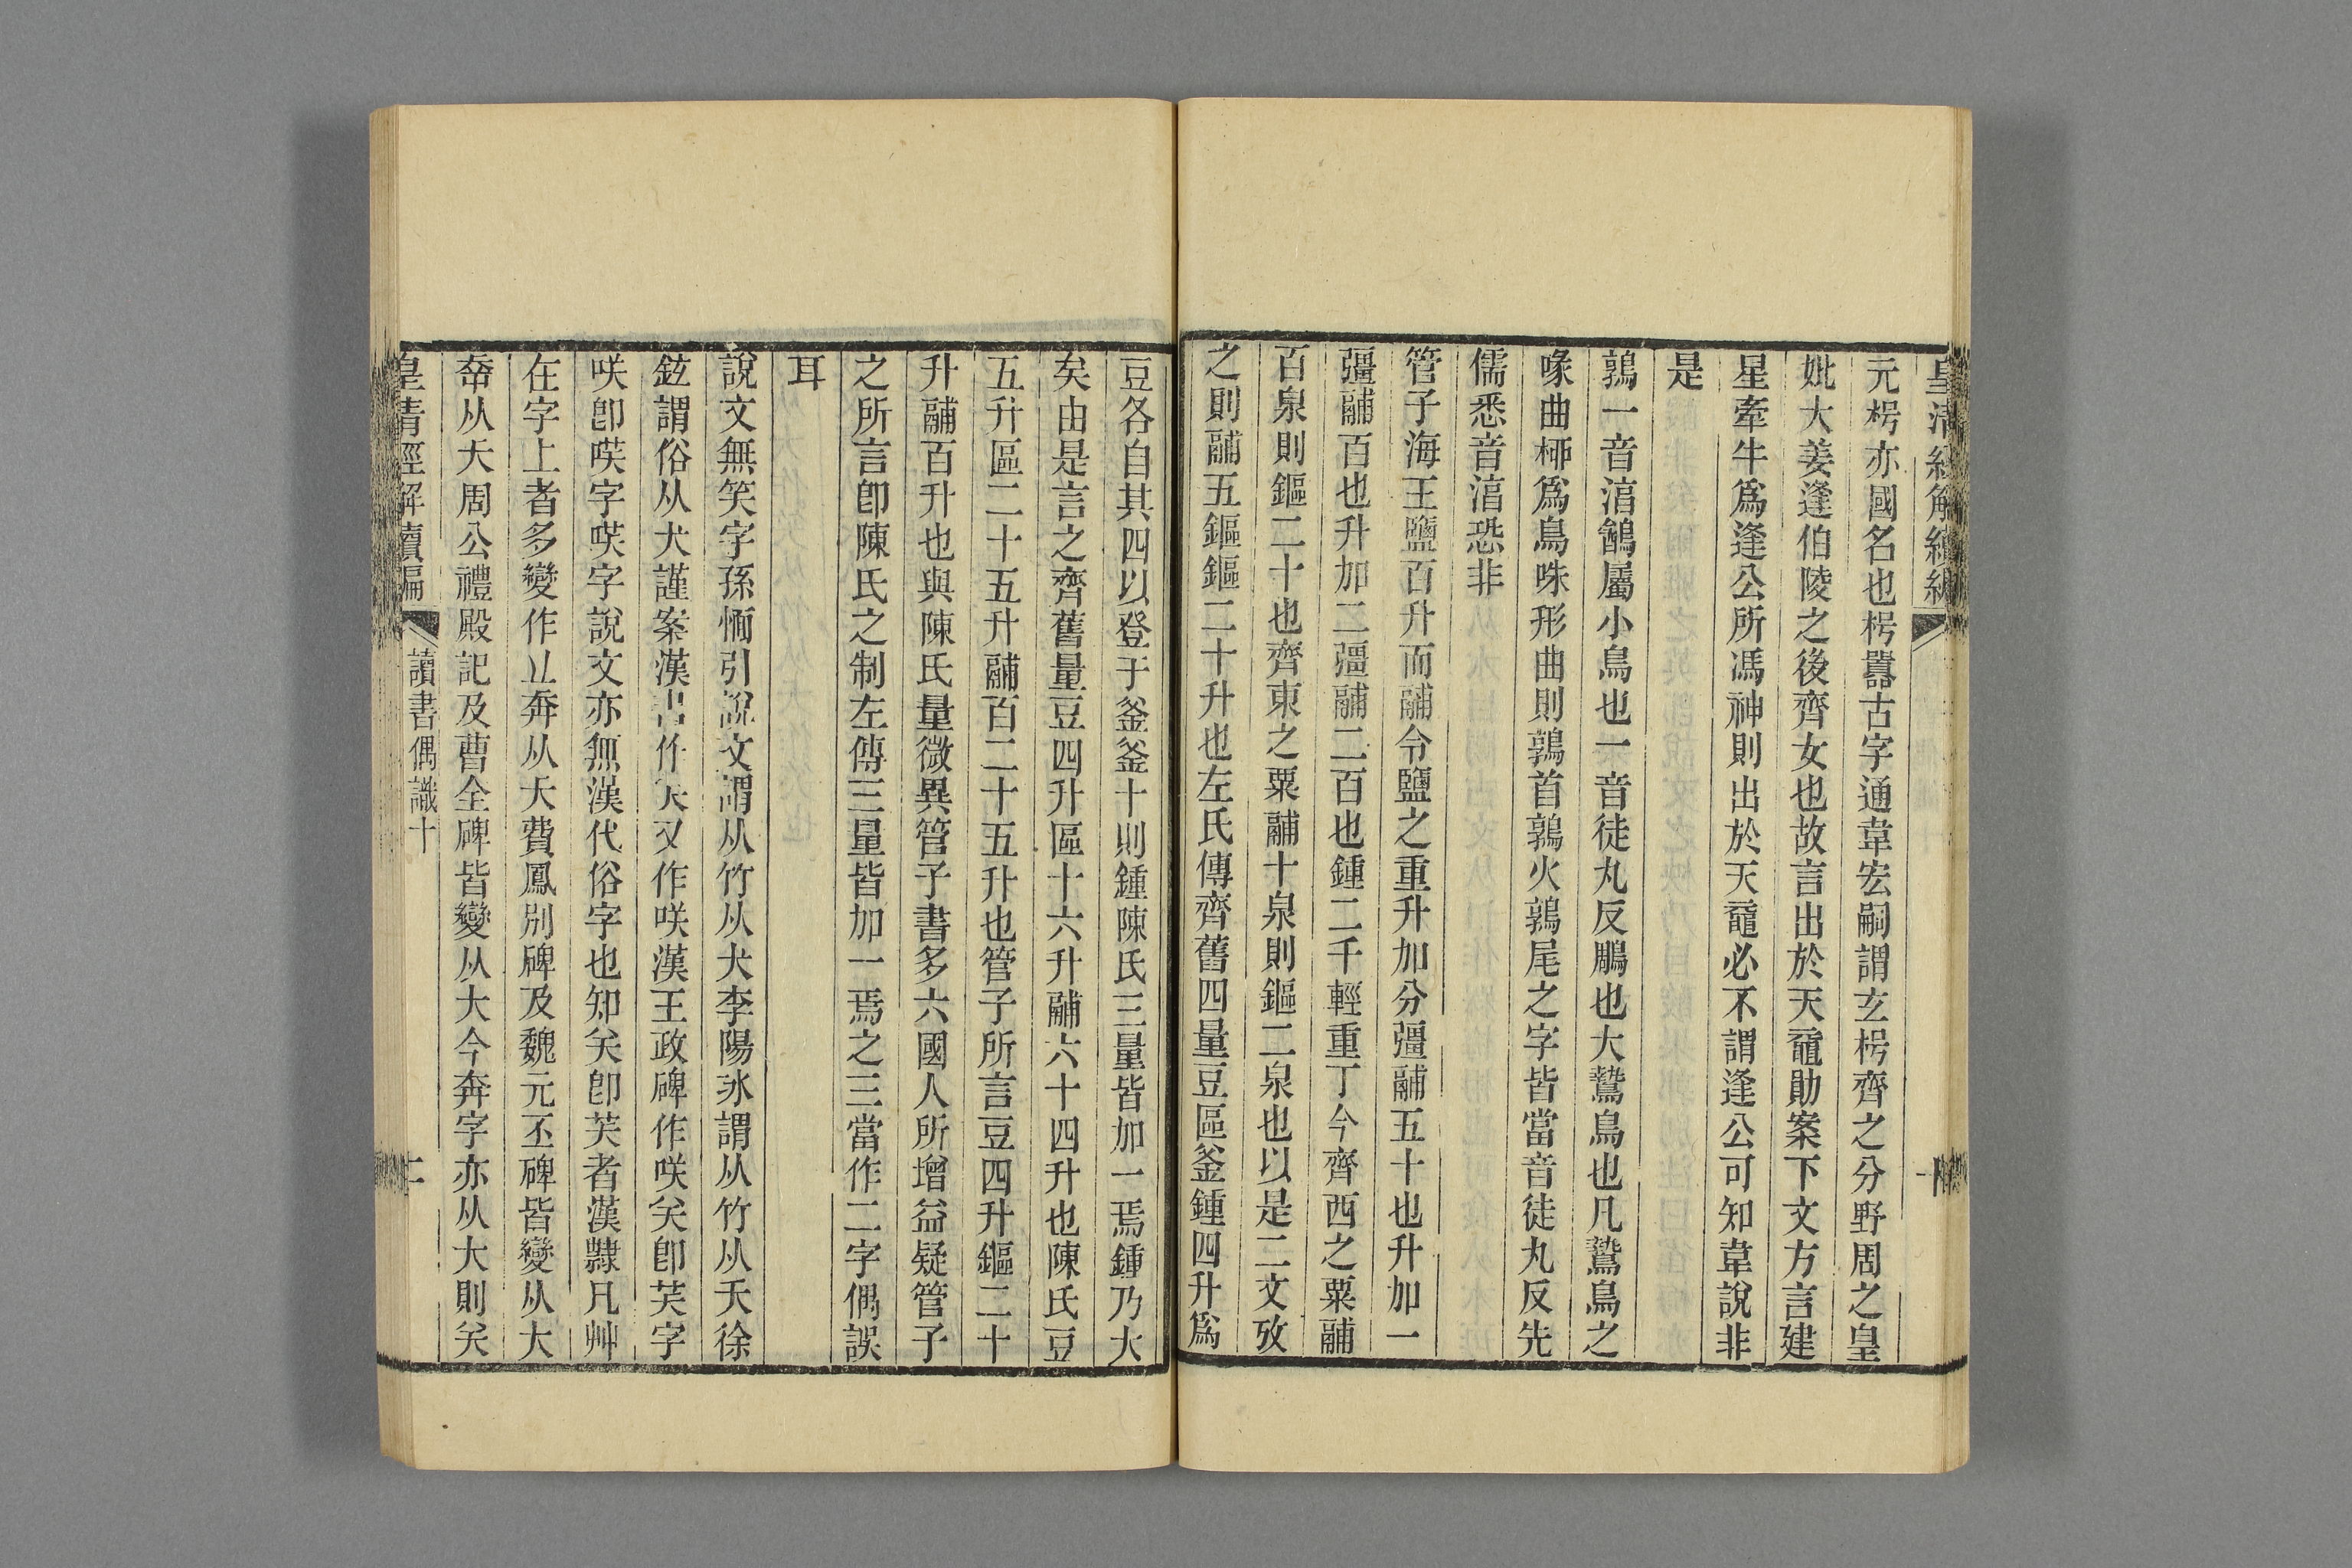 皇清經解續編
元枵亦國名也枵嚻古字通韋宏嗣謂玄枵齊之分野周之皇
妣大姜逢伯陵之後齊女也故言出於天黿勛案下文方言建
星牽牛爲逢公所馮神則出於天黿必不謂逢公可知韋說非
是
鶉一音淳䳺屬小鳥也一音徒丸反鵰也大鷙鳥也凡鷙鳥之
喙曲栁爲鳥咮形曲則鶉首鶉火鶉尾之字皆當音徒丸反先
儒悉音淳恐非
管子海王鹽百升而䩉令鹽之重升加分彊䩉五十也升加一
彊䩉百也升加二彊䩉二百也鍾二千輕重丁今齊西之粟䩉
百泉則鏂二十也齊東之粟䩉十泉則鏂二泉也以是二文攷
之則䩉五鏂鏂二十升也左氏傳齊舊四量豆區釜鍾四升爲
豆各自其四以登于釜釜十則鍾陳氏三量皆加一焉鍾乃大
矣由是言之齊舊量豆四升區十六升䩉六十四升也陳氏豆
五升區二十五升䩉百二十五升也管子所言豆四升鏂二十
升䩉百升也與陳氏量微異管子書多六國人所增益疑管子
之所言卽陳氏之制左傳三量皆加一焉之三當作二字偶誤
耳
說文無笑字孫愐引說文謂从竹从犬李陽冰謂从竹从夭徐
鉉謂俗从犬謹案漢書作关又作咲漢王政碑作咲关卽芺字
咲卽㗛字㗛字說文亦無漢代俗字也知关卽芺者漢隸凡艸
在字上者多變作䒑奔从夭費鳳別碑及魏元丕碑皆變从大
奔从夭周公禮殿記及曹全碑皆變从大今奔字亦从大則关
皇清經解續編
讀書偶識十
二